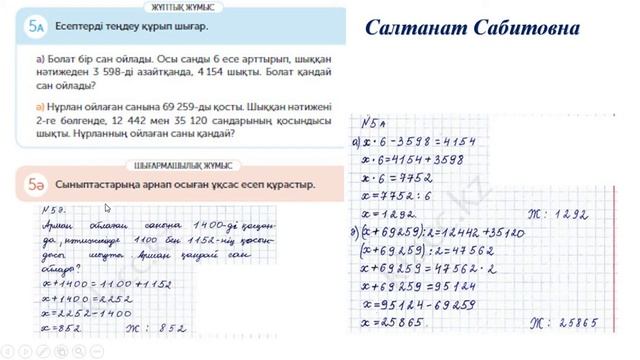 ЖҰПТЫҚ ЖҰМЫС
5А Есептерді теңдеу құрып шығар.
а) Болат бір сан ойлады. Осы санды 6 есе арттырып, шыққан
нәтижеден 3 598-ді азайтқанда, 4 154 шықты. Болат қандай
сан ойлады?
ә) Нұрлан ойлаған санына 69 259-ды қосты. Шыққан нәтижені
2-ге бөлгенде, 12 442 мен 35 120 сандарының қосындысы
шықты. Нұрланның ойлаған саны қандай?
ШЫҒАРМАШЫЛЫҚ ЖҰМЫС
5ә Сыныптастарыңа арнап осыған ұқсас есеп құрастыр.
№5ә.
Арман ойлаған санына 1400-ді қосқан-
да, нәтижеде 1100 бен 1152-нің қосын-
дысы шықты. Арман қандай сан
ойлады?
x+1400=1100+1152
x+1400=2252
x=2252-1400
x=852 Ж: 852
Салтанат Сабитовна
№5А
а) x·6-3598=4154
x·6=4154+3598
x·6=7752
x=7752:6
x=1292. Ж: 1292
ә) (x+69259):2=12442+35120
(x+69259):2=47562
x+69259=47562·2
x+69259=95124
x=95124-69259
x=25865. Ж: 25865